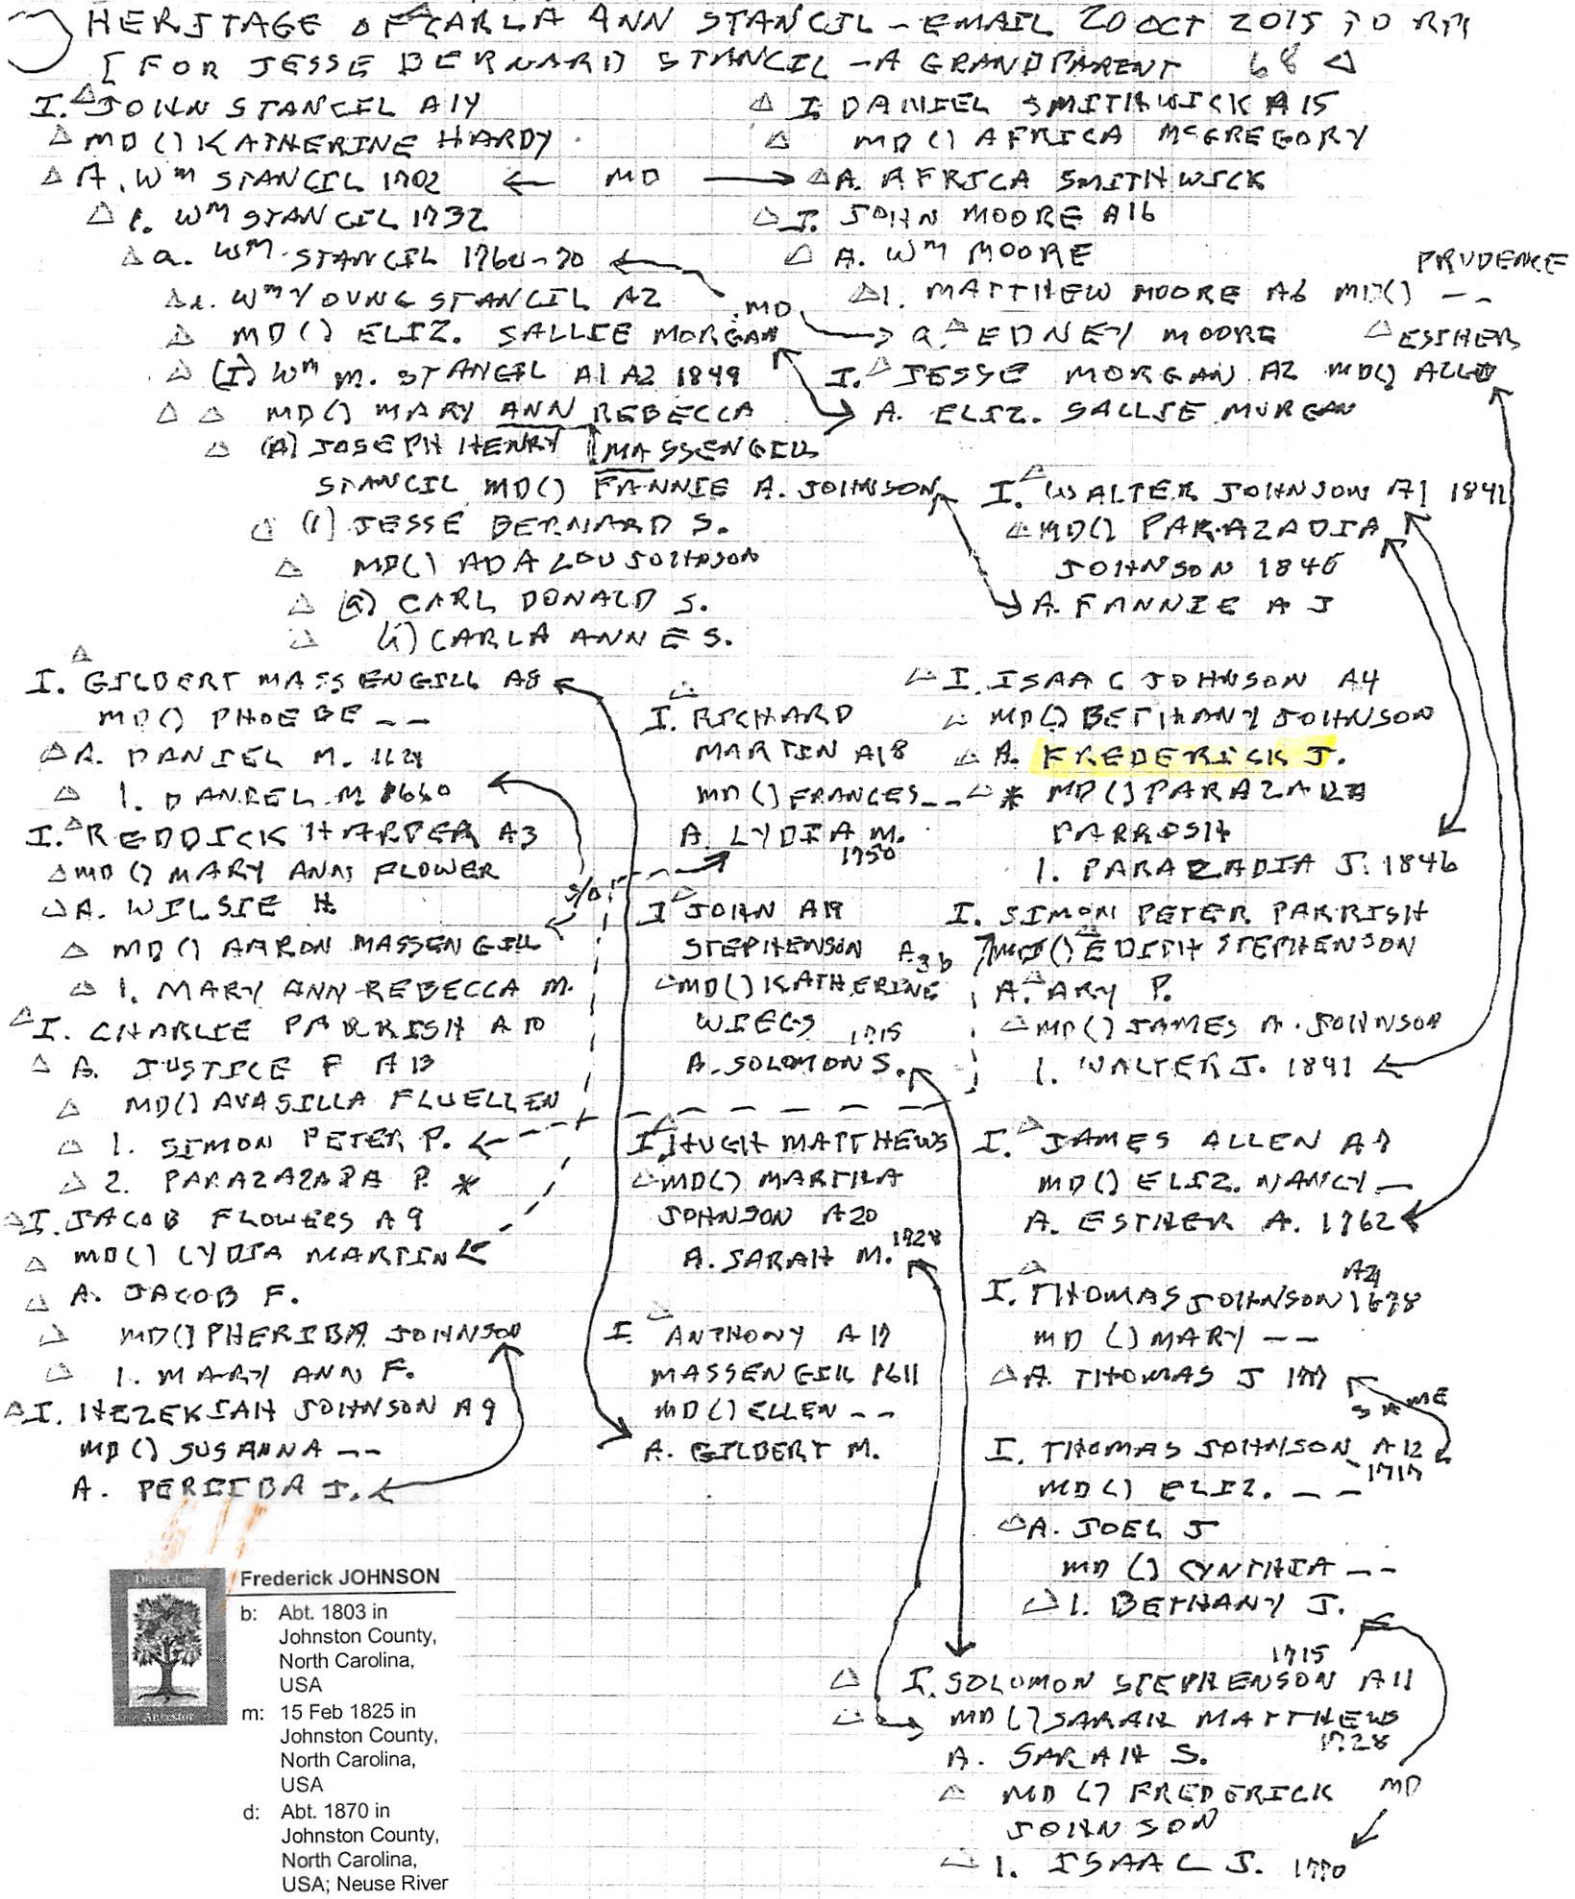 HERITAGE OF CARLA ANN STANCIL - EMAIL 20 OCT 2015 TO RM
[FOR JESSE BERNARD STANCIL - A GRANDPARENT 68
I. JOHN STANCIL A14
MD () KATHERINE HARDY
A. Wm STANCIL 1702 ← MD →
1. Wm STANCIL 1732
a. Wm. STANCIL 1760-70
MD
i. Wm YOUNG STANCIL A2
MD () ELIZ. SALLIE MORGAN
(I) Wm M. STANCIL A1 A2 1849
MD() MARY ANN REBECCA
MASSENGILL
(A) JOSEPH HENRY
STANCIL MD() FANNIE A. JOHNSON
(1) JESSE BERNARD S.
MD() ADA LOU JOHNSON
(a) CARL DONALD S.
(i) CARLA ANNE S.
I. DANIEL SMITHWICK A15
MD () AFRICA McGREGORY
A. AFRICA SMITHWICK
I. JOHN MOORE A16
A. Wm MOORE
PRUDENCE
1. MATTHEW MOORE A6 MD() --
a. EDNEY MOORE
ESTHER
I. JESSE MORGAN A2 MD()
A. ELIZ. SALLIE MORGAN
I. WALTER JOHNSON A1 1841
MD() PARAZADIA
JOHNSON 1846
A. FANNIE A J
I. GILBERT MASSENGILL A8
MD() PHOEBE --
A. DANIEL M.
1. DANIEL M 1660
I. REDDICK HARPER A3
MD () MARY ANN FLOWER
A. WILSIE H.
MD () AARON MASSENGILL
1. MARY ANN REBECCA M.
I. CHARLIE PARRISH A10
A. JUSTICE P A13
MD() AVASILLA FLUELLEN
1. SIMON PETER P.
2. PARAZAZADA P. *
I. JACOB FLOWERS A9
MD() LYDIA MARTIN
A. JACOB F.
MD() PHERIBA JOHNSON
1. MARY ANN F.
I. HEZEKIAH JOHNSON A9
MD () SUSANNA --
A. PERIIBA J.
I. RICHARD
MARTIN A18
MD () FRANCES --
A. LYDIA M.
1750
S/O
I JOHN A19
STEPHENSON A3b
MD() KATHERINE
WIEGS 1715
A. SOLOMON S.
I. HUGH MATTHEWS
MD() MARTHA
JOHNSON A20
1728
A. SARAH M.
I. ANTHONY A17
MASSENGILL 1611
MD () ELLEN --
A. GILBERT M.
I. ISAAC JOHNSON A4
MD() BETHANY JOHNSON
A. FREDERICK J.
* MD () PARAZADA
PARRISH
1. PARAZADIA J. 1846
I. SIMON PETER PARRISH
MD () EDITH STEPHENSON
A. ARY P.
MD() JAMES A. JOHNSON
1. WALTER J. 1841
I. JAMES ALLEN A7
MD() ELIZ. NANCY --
A. ESTHER A. 1762
A21
I. THOMAS JOHNSON 1678
MD () MARY --
A. THOMAS J 1717
SAME
I. THOMAS JOHNSON A12
1717
MD () ELIZ. --
A. JOEL J
MD () CYNTHIA --
1. BETHANY J.
1715
I. SOLOMON STEPHENSON A11
MD () SARAH MATTHEWS
1728
A. SARAH S.
MD () FREDERICK
JOHNSON
MD
1. ISAAC J. 1770
Direct Line
Ancestor
Frederick JOHNSON
b: Abt. 1803 in
Johnston County,
North Carolina,
USA
m: 15 Feb 1825 in
Johnston County,
North Carolina,
USA
d: Abt. 1870 in
Johnston County,
North Carolina,
USA; Neuse River